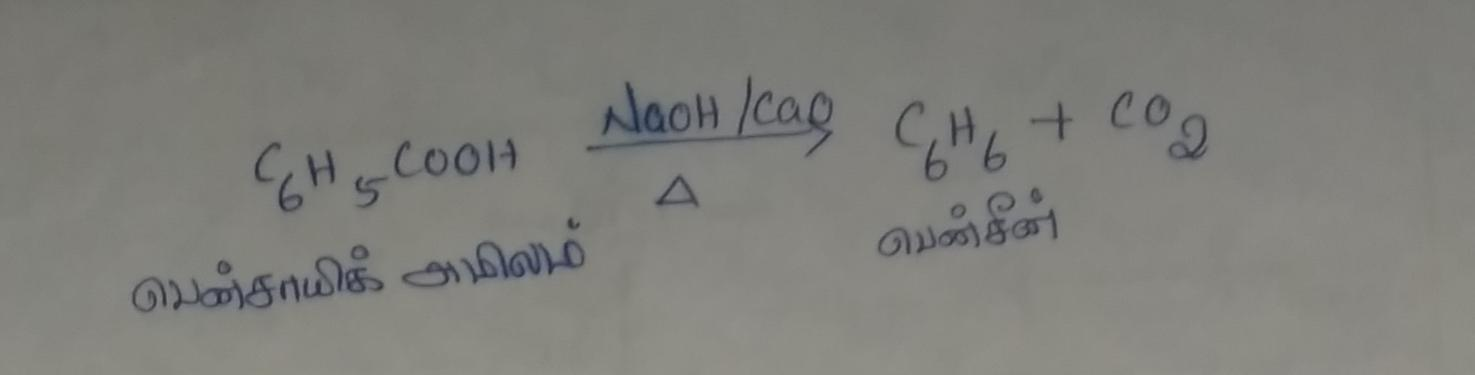 C₆H₅COOH NaOH/CaO → Δ C₆H₆ + CO₂
பென்சாயிக் அமிலம் பென்சீன்